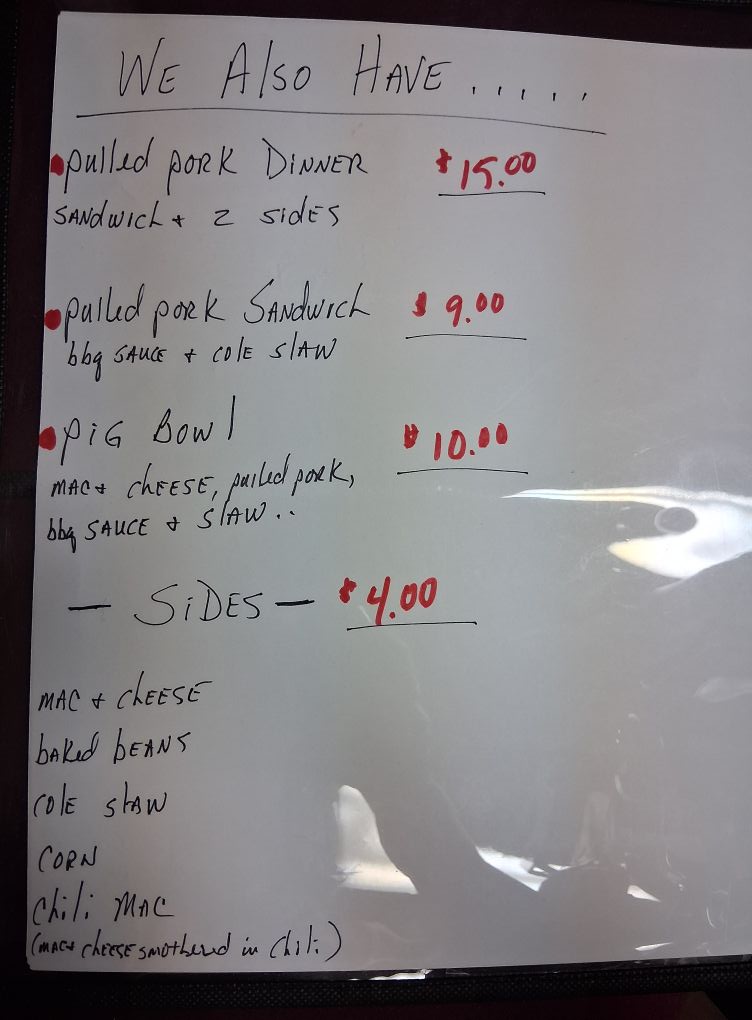 WE Also HAVE .....
pulled pork DiNNER $15.00
SANdwich + 2 sidES
pulled pork SANdwich $9.00
bbq SAUCE + colE slAW
piG Bowl $10.00
MAC + chEESE, pulled pork,
bbq SAUCE + slAW..
— SiDES — $4.00
MAC + chEESE
bAKed bEANS
colE slAW
CORN
chili MAC
(MAC + chEESE smothered in chili)